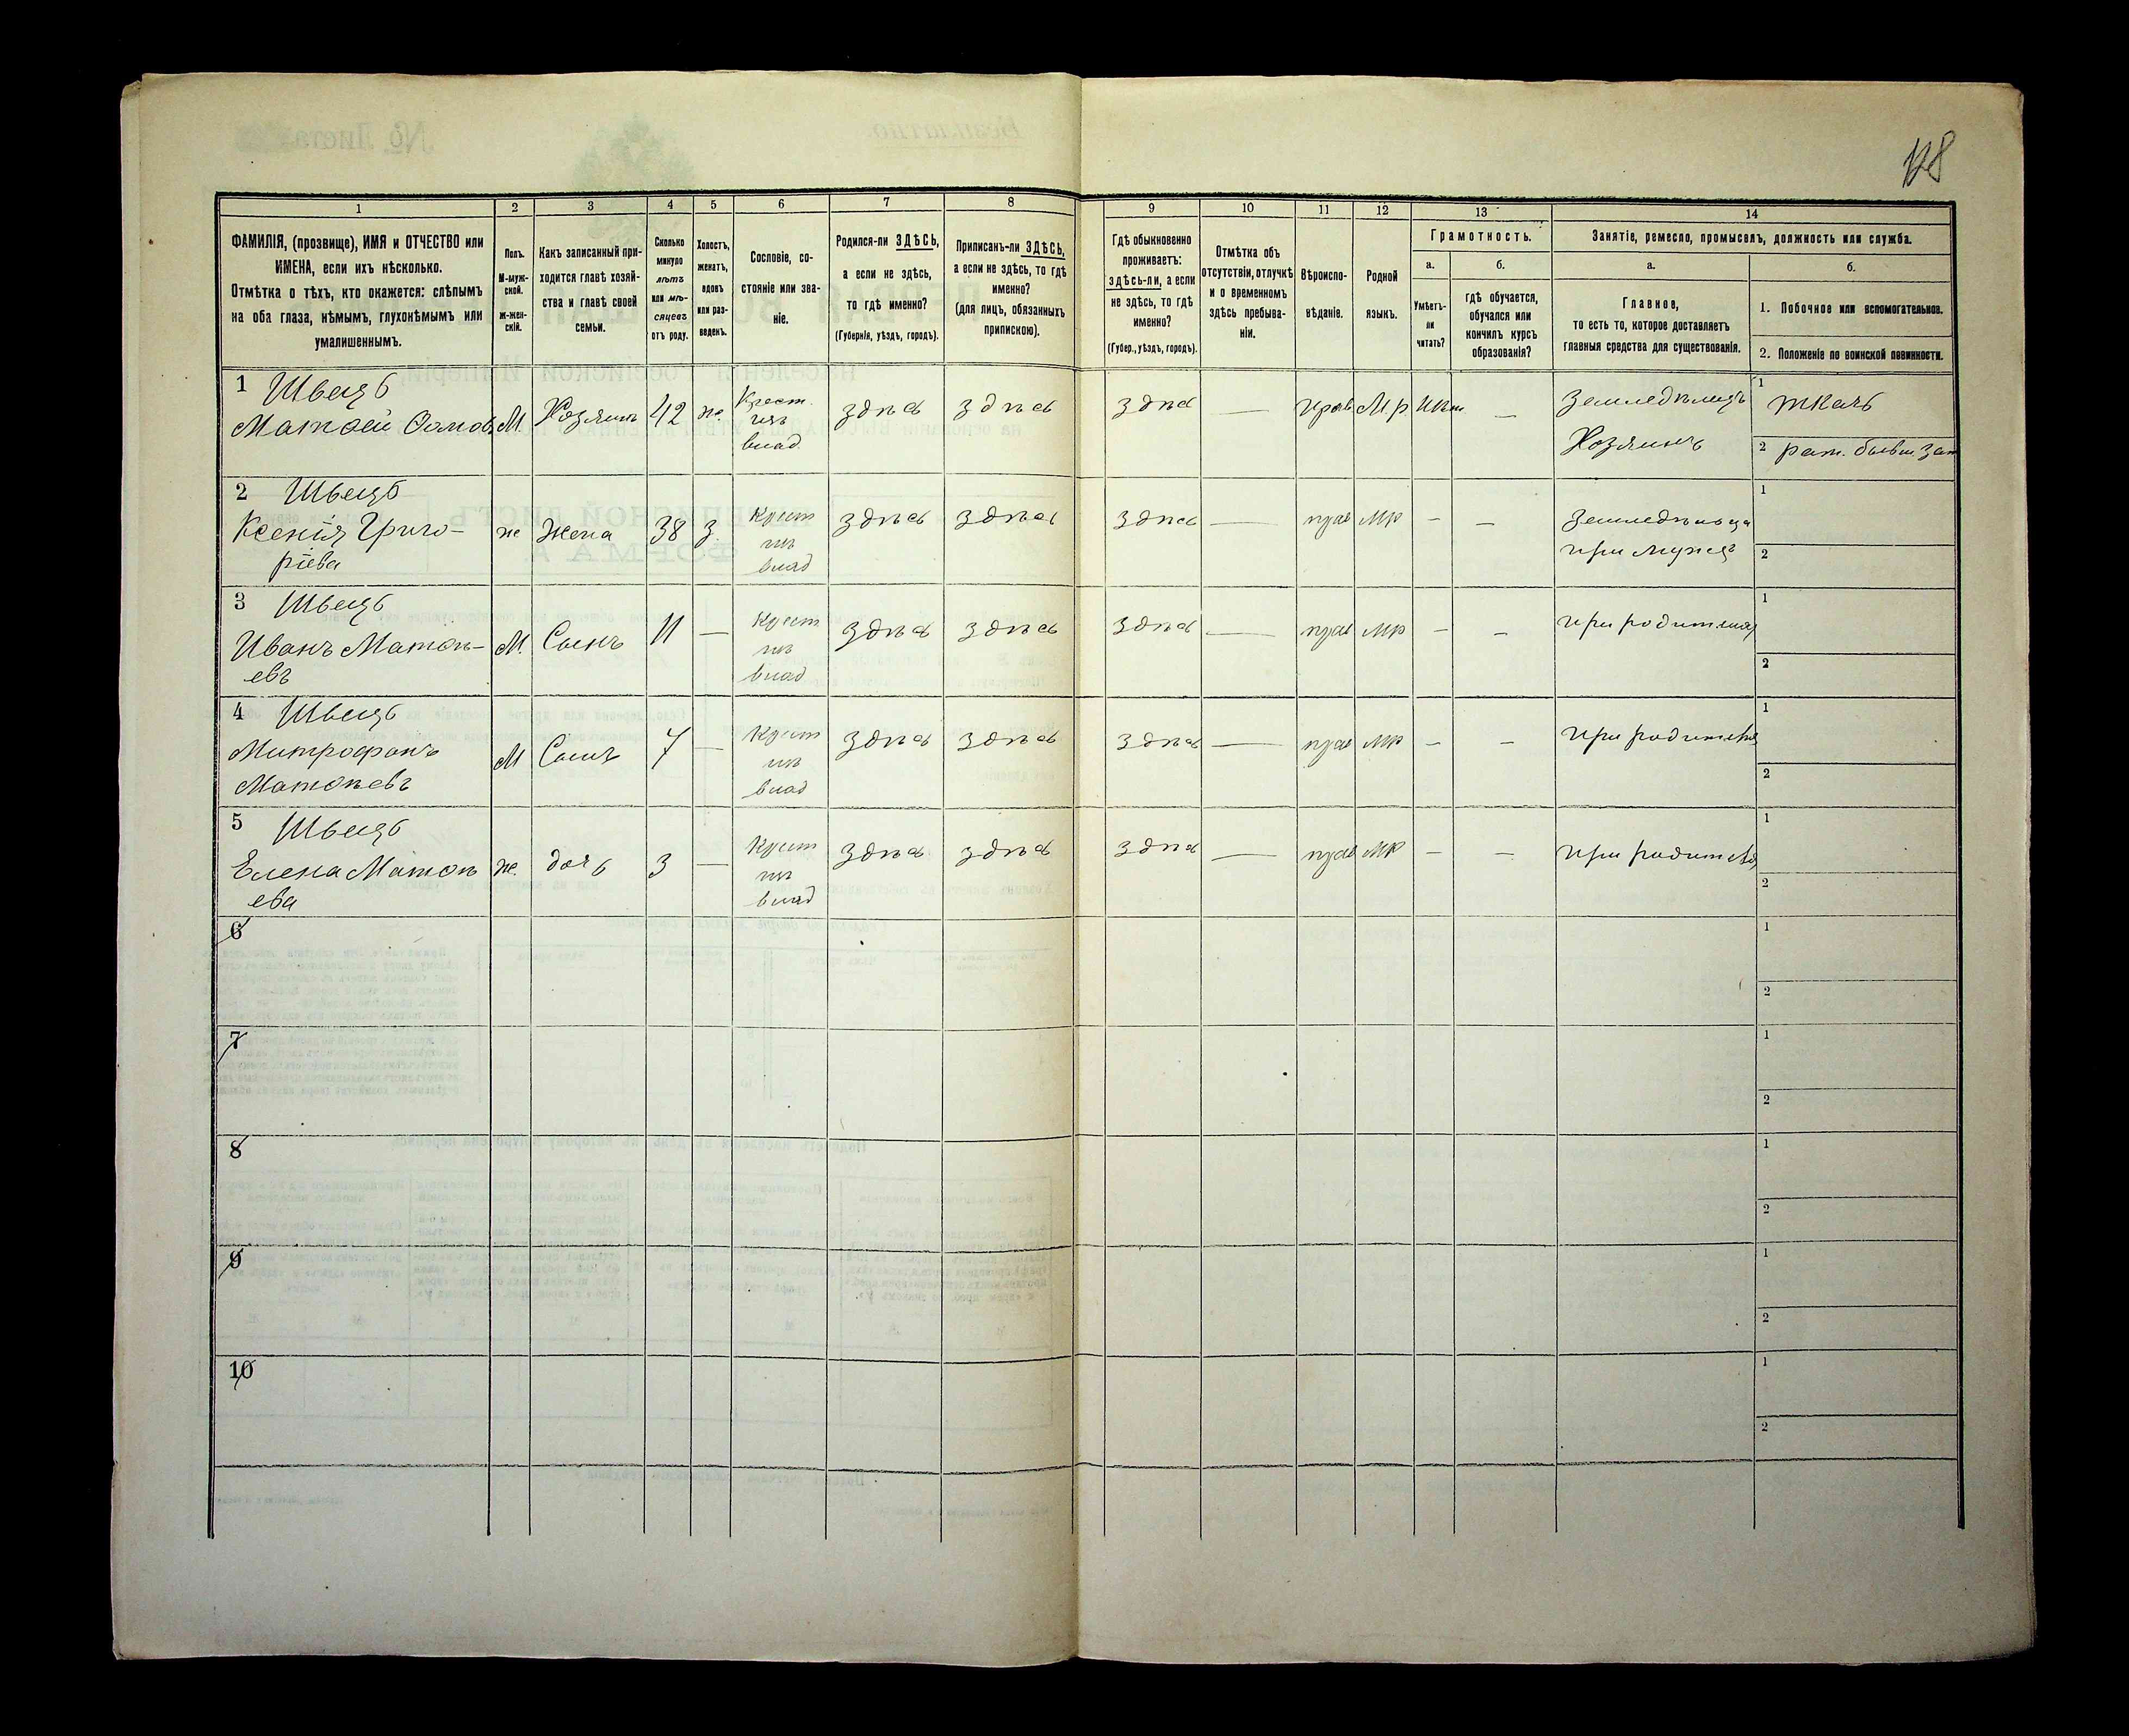 128
1
2
3
4
5
6
7
8
9
10
11
12
13
14
ФАМИЛІЯ, (прозвище), ИМЯ и ОТЧЕСТВО или
ИМЕНА, если ихъ нѣсколько.
Отмѣтка о тѣхъ, кто окажется: слѣпымъ
на оба глаза, нѣмымъ, глухонѣмымъ или
умалишеннымъ.
Полъ.
М-муж-
ской.
Ж-жен-
скій.
Какъ записанный при-
ходится главѣ хозяй-
ства и главѣ своей
семьи.
Сколько
минуло
лѣтъ
или мѣ-
сяцевъ
отъ роду.
Холостъ,
женатъ,
вдовъ
или раз-
веденъ.
Сословіе, со-
стояніе или зва-
ніе.
Родился-ли ЗДѢСЬ,
а если не здѣсь,
то гдѣ именно?
(Губернія, уѣздъ, городъ).
Приписанъ-ли ЗДѢСЬ,
а если не здѣсь, то гдѣ
именно?
(для лицъ, обязанныхъ
припискою).
Гдѣ обыкновенно
проживаетъ:
здѣсь-ли, а если
не здѣсь, то гдѣ
именно?
(Губер., уѣздъ, городъ).
Отмѣтка объ
отсутствіи, отлучкѣ
и о временномъ
здѣсь пребыва-
ніи.
Вѣроиспо-
вѣданіе.
Родной
языкъ.
Грамотность.
а.
Умѣетъ-
ли
читать?
б.
гдѣ обучается,
обучался или
кончилъ курсъ
образованія?
Занятіе, ремесло, промыселъ, должность или служба.
а.
Главное,
то есть то, которое доставляетъ
главныя средства для существованія.
б.
1. Побочное или вспомогательное.
2. Положеніе по воинской повинности.
1 Швецъ
Матѳей Ѳомовъ М. Хозяинъ 42 же Крест. здѣсь здѣсь здѣсь — прав М.р. нѣт — Землед 1 ткачь
влад.
Хозяинъ 2 рат.
2 Швецъ
Ксенія Григо- же Жена 38 з. Крест здѣсь здѣсь здѣсь — прав мр — — 1
ріева влад при мужѣ 2
3 Швецъ
Иванъ Матѳѣ- М. Сынъ 11 — Крест здѣсь здѣсь здѣсь — прав мр — — при родителях 1
евъ влад 2
4 Швецъ
Митрофанъ М Сынъ 7 — Крест здѣсь здѣсь здѣсь — прав мр — — при родителях 1
Матѳѣевъ влад 2
5 Швецъ
Елена Матѳѣ же. дочь 3 — Крест здѣсь здѣсь здѣсь — прав мр — — при родителях 1
ева влад 2
6 1
2
7 1
2
8 1
2
9 1
2
10 1
2